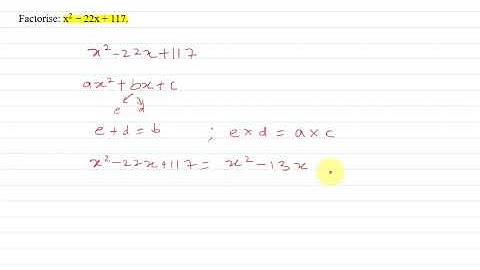 Factorise: x² − 22x + 117.
x² - 22x + 117
ax² + bx + c
e d
e + d = b ; e × d = a × c
x² - 22x + 117 = x² - 13x